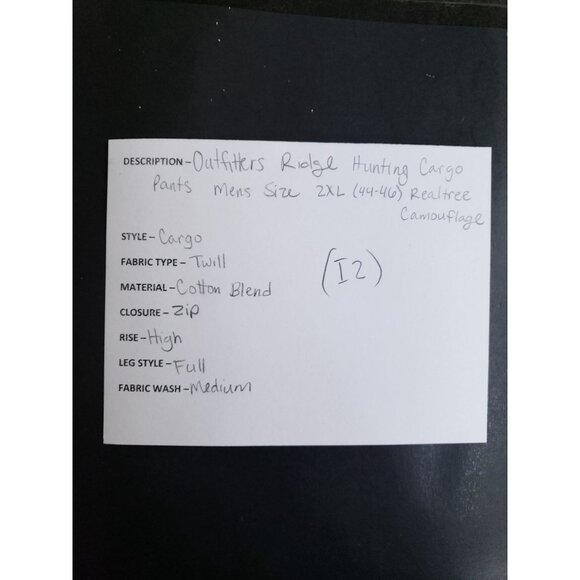 DESCRIPTION - Outfitters Ridge Hunting Cargo
Pants Mens Size 2XL (44-46) Realtree
Camouflage
STYLE - Cargo
FABRIC TYPE - Twill
(I2)
MATERIAL - Cotton Blend
CLOSURE - Zip
RISE - High
LEG STYLE - Full
FABRIC WASH - Medium